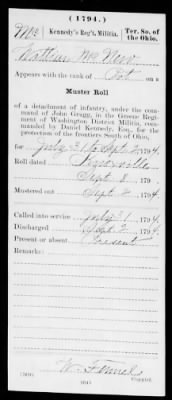 (1794.)
Mc Kennedy's Reg't, Militia. Ter. So. of the Ohio.
Appears with the rank of Pvt on a
Muster Roll
of a detachment of infantry, under the command
of John Gragg, in the Greene Regiment
of Washington District Militia, commanded
by Daniel Kennedy, Esq., for the
protection of the frontiers South of Ohio,
for July 31 to Sept 2, 1794.
Roll dated Knoxville
Sept 2, 1794
Mustered out Sept 2, 1794.
Called into service July 31, 1794.
Discharged Sept 2, 1794.
Present or absent Present
Remarks:
Copyist.